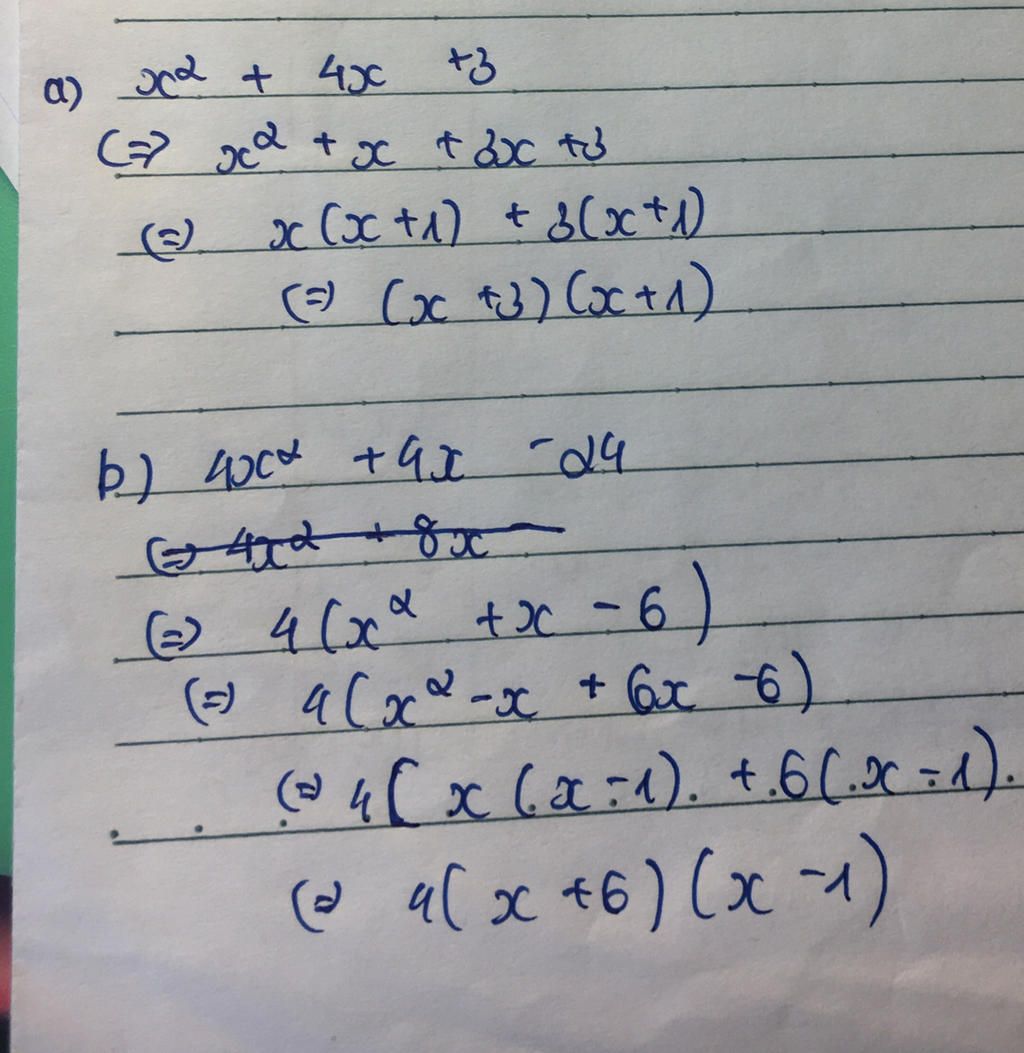 a) x² + 4x +3
(=> x² + x + 3x +3
(=) x(x+1) + 3(x+1)
(=) (x +3)(x+1)
b) 4x² +4x -24
(=> 4x² + 8x
(=) 4(x² +x - 6)
(=) 4(x² -x + 6x -6)
(=) 4[ x(x-1) + 6(x-1)
(=) 4(x +6)(x -1)